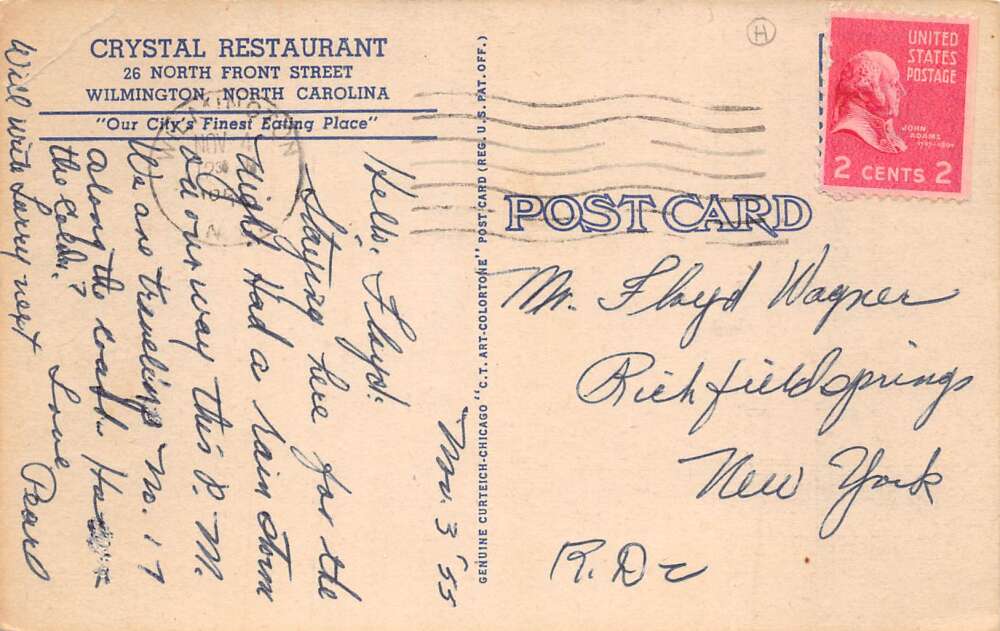 CRYSTAL RESTAURANT
26 NORTH FRONT STREET
WILMINGTON, NORTH CAROLINA
"Our City's Finest Eating Place"
Nov. 3 '55
Hello, Floyd:
Staying here for the
night. Had a rain storm
on our way this P.M.
We are traveling No. 17
along the coast. How
the cold?
Love Pearl
Will write Larry next
GENUINE CURTEICH-CHICAGO "C.T. ART-COLORTONE" POST CARD (REG. U.S. PAT. OFF.)
H
UNITED
STATES
POSTAGE
JOHN
ADAMS
1797-1801
2 CENTS 2
NOV 4
POST CARD
Mr. Floyd Wagner
Richfield Springs
New York
R.D.